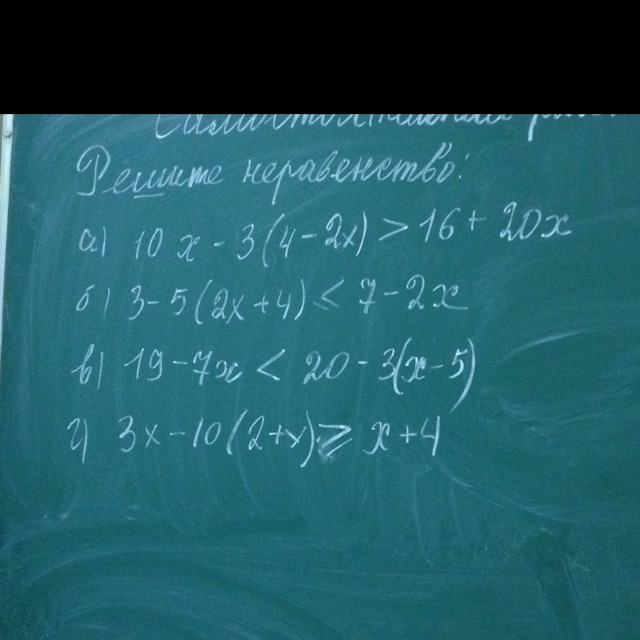 Решите неравенство:
а) 10x - 3(4 - 2x) > 16 + 20x
б) 3 - 5(2x + 4) < 7 - 2x
в) 19 - 7x < 20 - 3(x - 5)
г) 3x - 10(2 + x) ⩾ x + 4